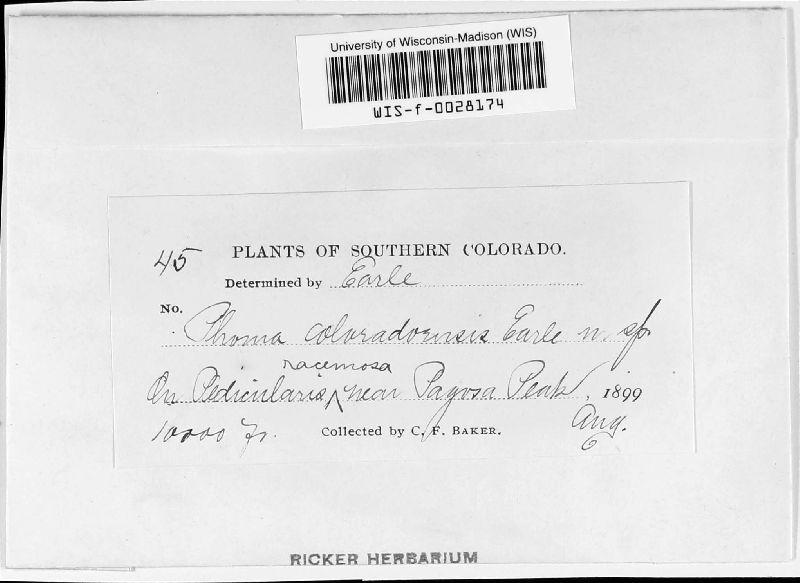 University of Wisconsin-Madison (WIS)
WIS-f-0028174
45 PLANTS OF SOUTHERN COLORADO.
Determined by Earle
No.
Phoma coloradoensis Earle n. sp
racemosa
On Pedicularis, ^ near Pagosa Peak, 1899
10000 ft. Collected by C. F. BAKER. Aug.
6
RICKER HERBARIUM